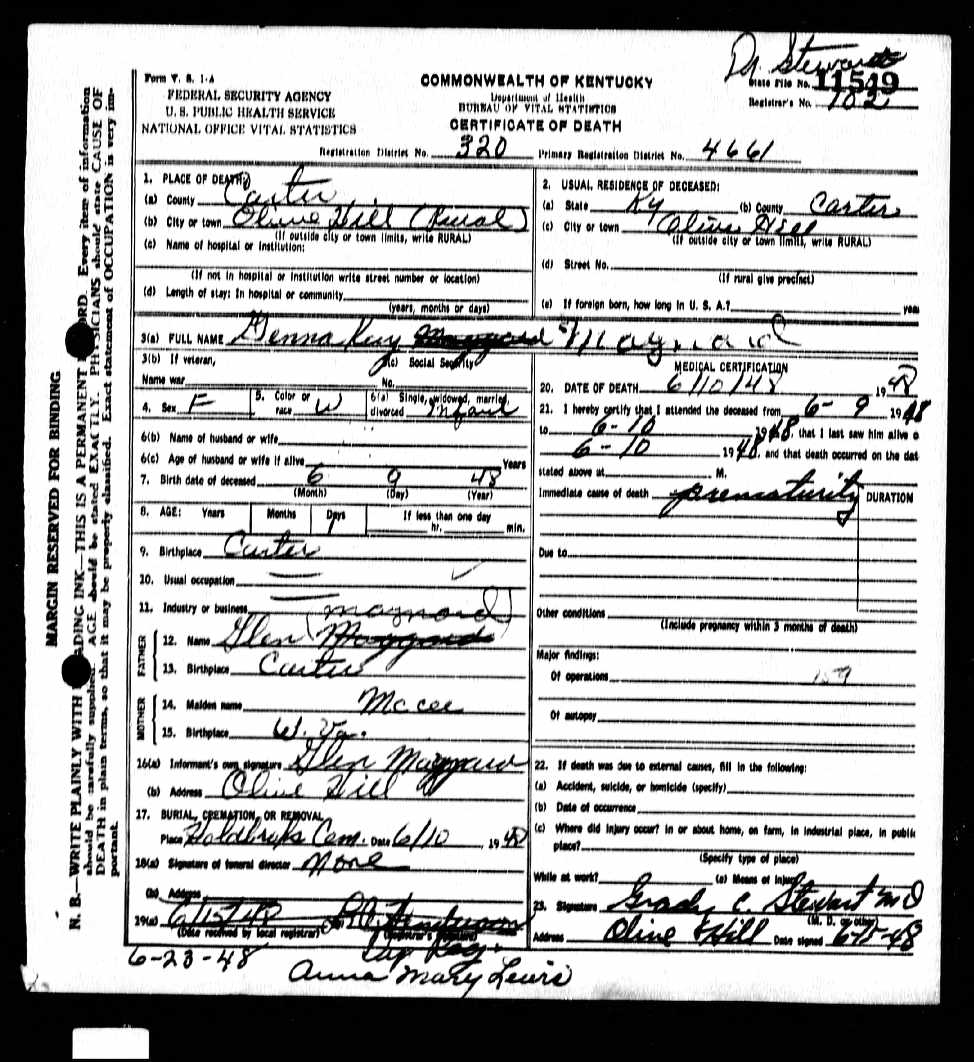 Dr. Stewart
Form V. S. 1-A
COMMONWEALTH OF KENTUCKY
State File No. 11549
FEDERAL SECURITY AGENCY
Department of Health
Registrar's No. 102
U. S. PUBLIC HEALTH SERVICE
BUREAU OF VITAL STATISTICS
NATIONAL OFFICE VITAL STATISTICS
CERTIFICATE OF DEATH
Registration District No. 320 Primary Registration District No. 4661
1. PLACE OF DEATH:
(a) County Carter
(b) City or town Olive Hill (Rural)
(If outside city or town limits, write RURAL)
(c) Name of hospital or institution:
(If not in hospital or institution write street number or location)
(d) Length of stay: In hospital or community
(years, months or days)
2. USUAL RESIDENCE OF DECEASED:
(a) State Ky (b) County Carter
(c) City or town Olive Hill
(If outside city or town limits, write RURAL)
(d) Street No.
(If rural give precinct)
(e) If foreign born, how long in U. S. A.? yea
3(a) FULL NAME Glenna Kay Maynard
3(b) If veteran,
Name war
3(c) Social Security
No.
4. Sex F
5. Color or race W
6(a) Single, widowed, married, divorced Infant
6(b) Name of husband or wife
6(c) Age of husband or wife if alive Years
7. Birth date of deceased 6 9 48
(Month) (Day) (Year)
8. AGE: Years Months Days If less than one day
1 hr. min.
9. Birthplace Carter
10. Usual occupation
11. Industry or business
(Maynard)
FATHER
12. Name Glen Mayyard
13. Birthplace Carter
MOTHER
14. Maiden name Mccee
15. Birthplace W. Va.
16(a) Informant's own signature Glen Mayyard
(b) Address Olive Hill
17. BURIAL, CREMATION, OR REMOVAL
Place Holdbrooks Cem. Date 6/10, 1948
18(a) Signature of funeral director None
(b) Address
19(a) 6/15/48
(Date received by local registrar) (Registrar's signature)
6-23-48
Anna Mary Lewis
MEDICAL CERTIFICATION
20. DATE OF DEATH 6/10/48 1948
21. I hereby certify that I attended the deceased from 6-9 1948
to 6-10 1948, that I last saw him alive o
6-10 1948, and that death occurred on the dat
stated above at M.
Immediate cause of death prematurity DURATION
Due to
Other conditions
(Include pregnancy within 3 months of death)
Major findings:
Of operations 159
Of autopsy
22. If death was due to external causes, fill in the following:
(a) Accident, suicide, or homicide (specify)
(b) Date of occurrence
(c) Where did injury occur? In or about home, on farm, in industrial place, in publi
place?
(Specify type of place)
While at work? (e) Means of injury
23. Signature Grady C. Stewart MD
(M. D. or other)
Address Olive Hill Date signed 6-15-48
MARGIN RESERVED FOR BINDING
N. B.—WRITE PLAINLY WITH ADING INK—THIS IS A PERMANENT ORD. Every item of information
should be carefully supplied. AGE should be stated EXACTLY. PHYSICIANS should state CAUSE OF
DEATH in plain terms, so that it may be properly classified. Exact statement of OCCUPATION is very im-
portant.